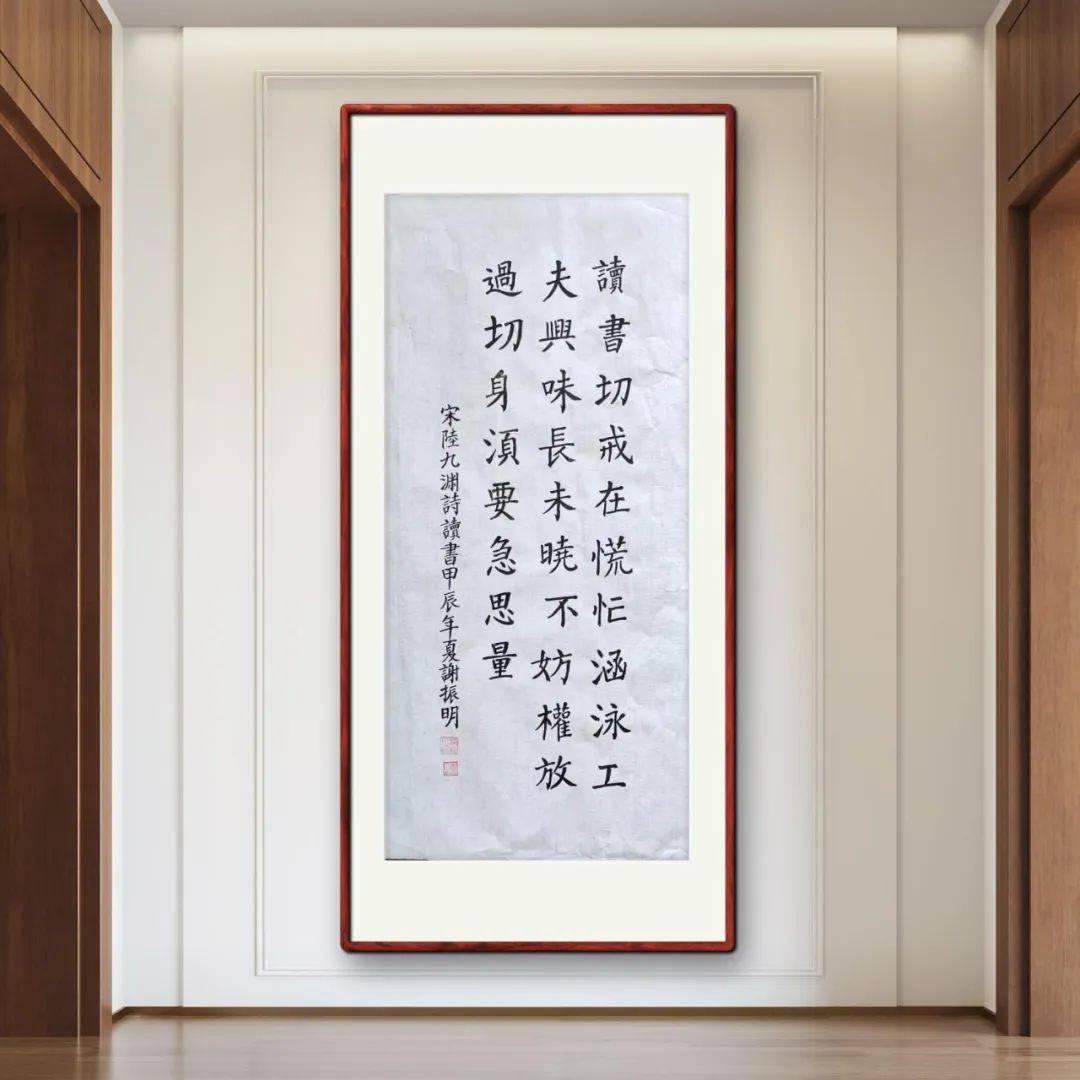 讀書切戒在慌忙涵泳工
夫興味長未曉不妨權放
過切身須要急思量
宋陸九淵詩讀書甲辰年夏謝振明